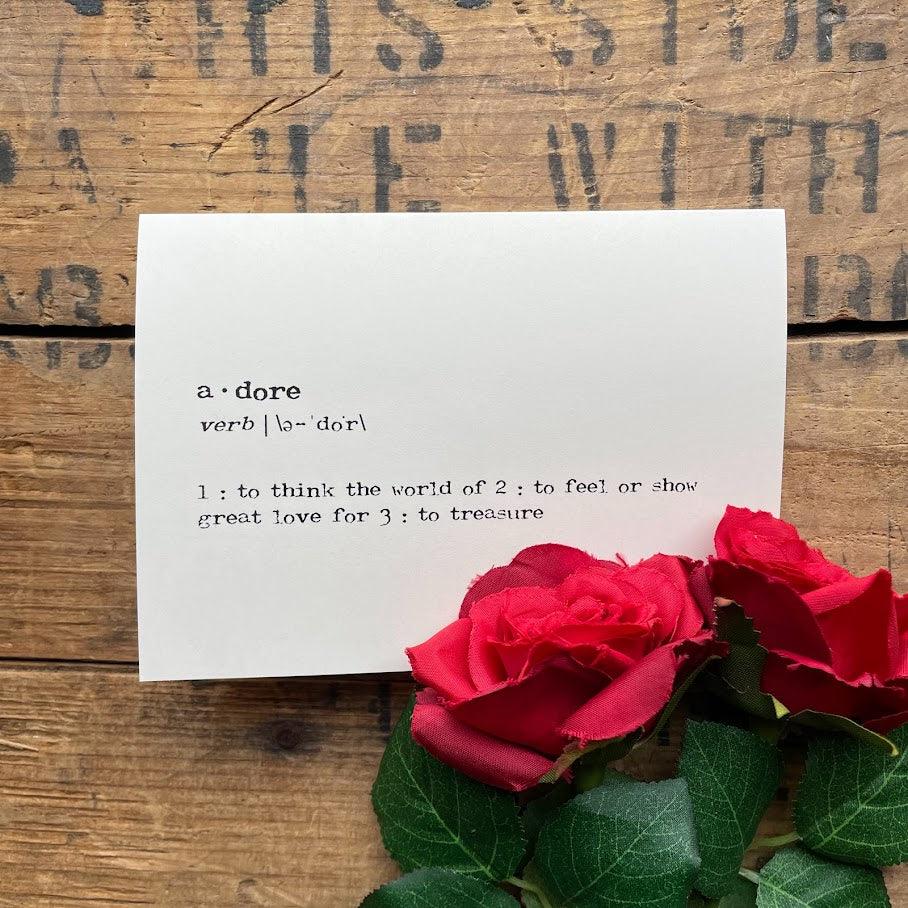 WITH
a · dore
verb | \ə-ˈdȯr\
1 : to think the world of 2 : to feel or show
great love for 3 : to treasure